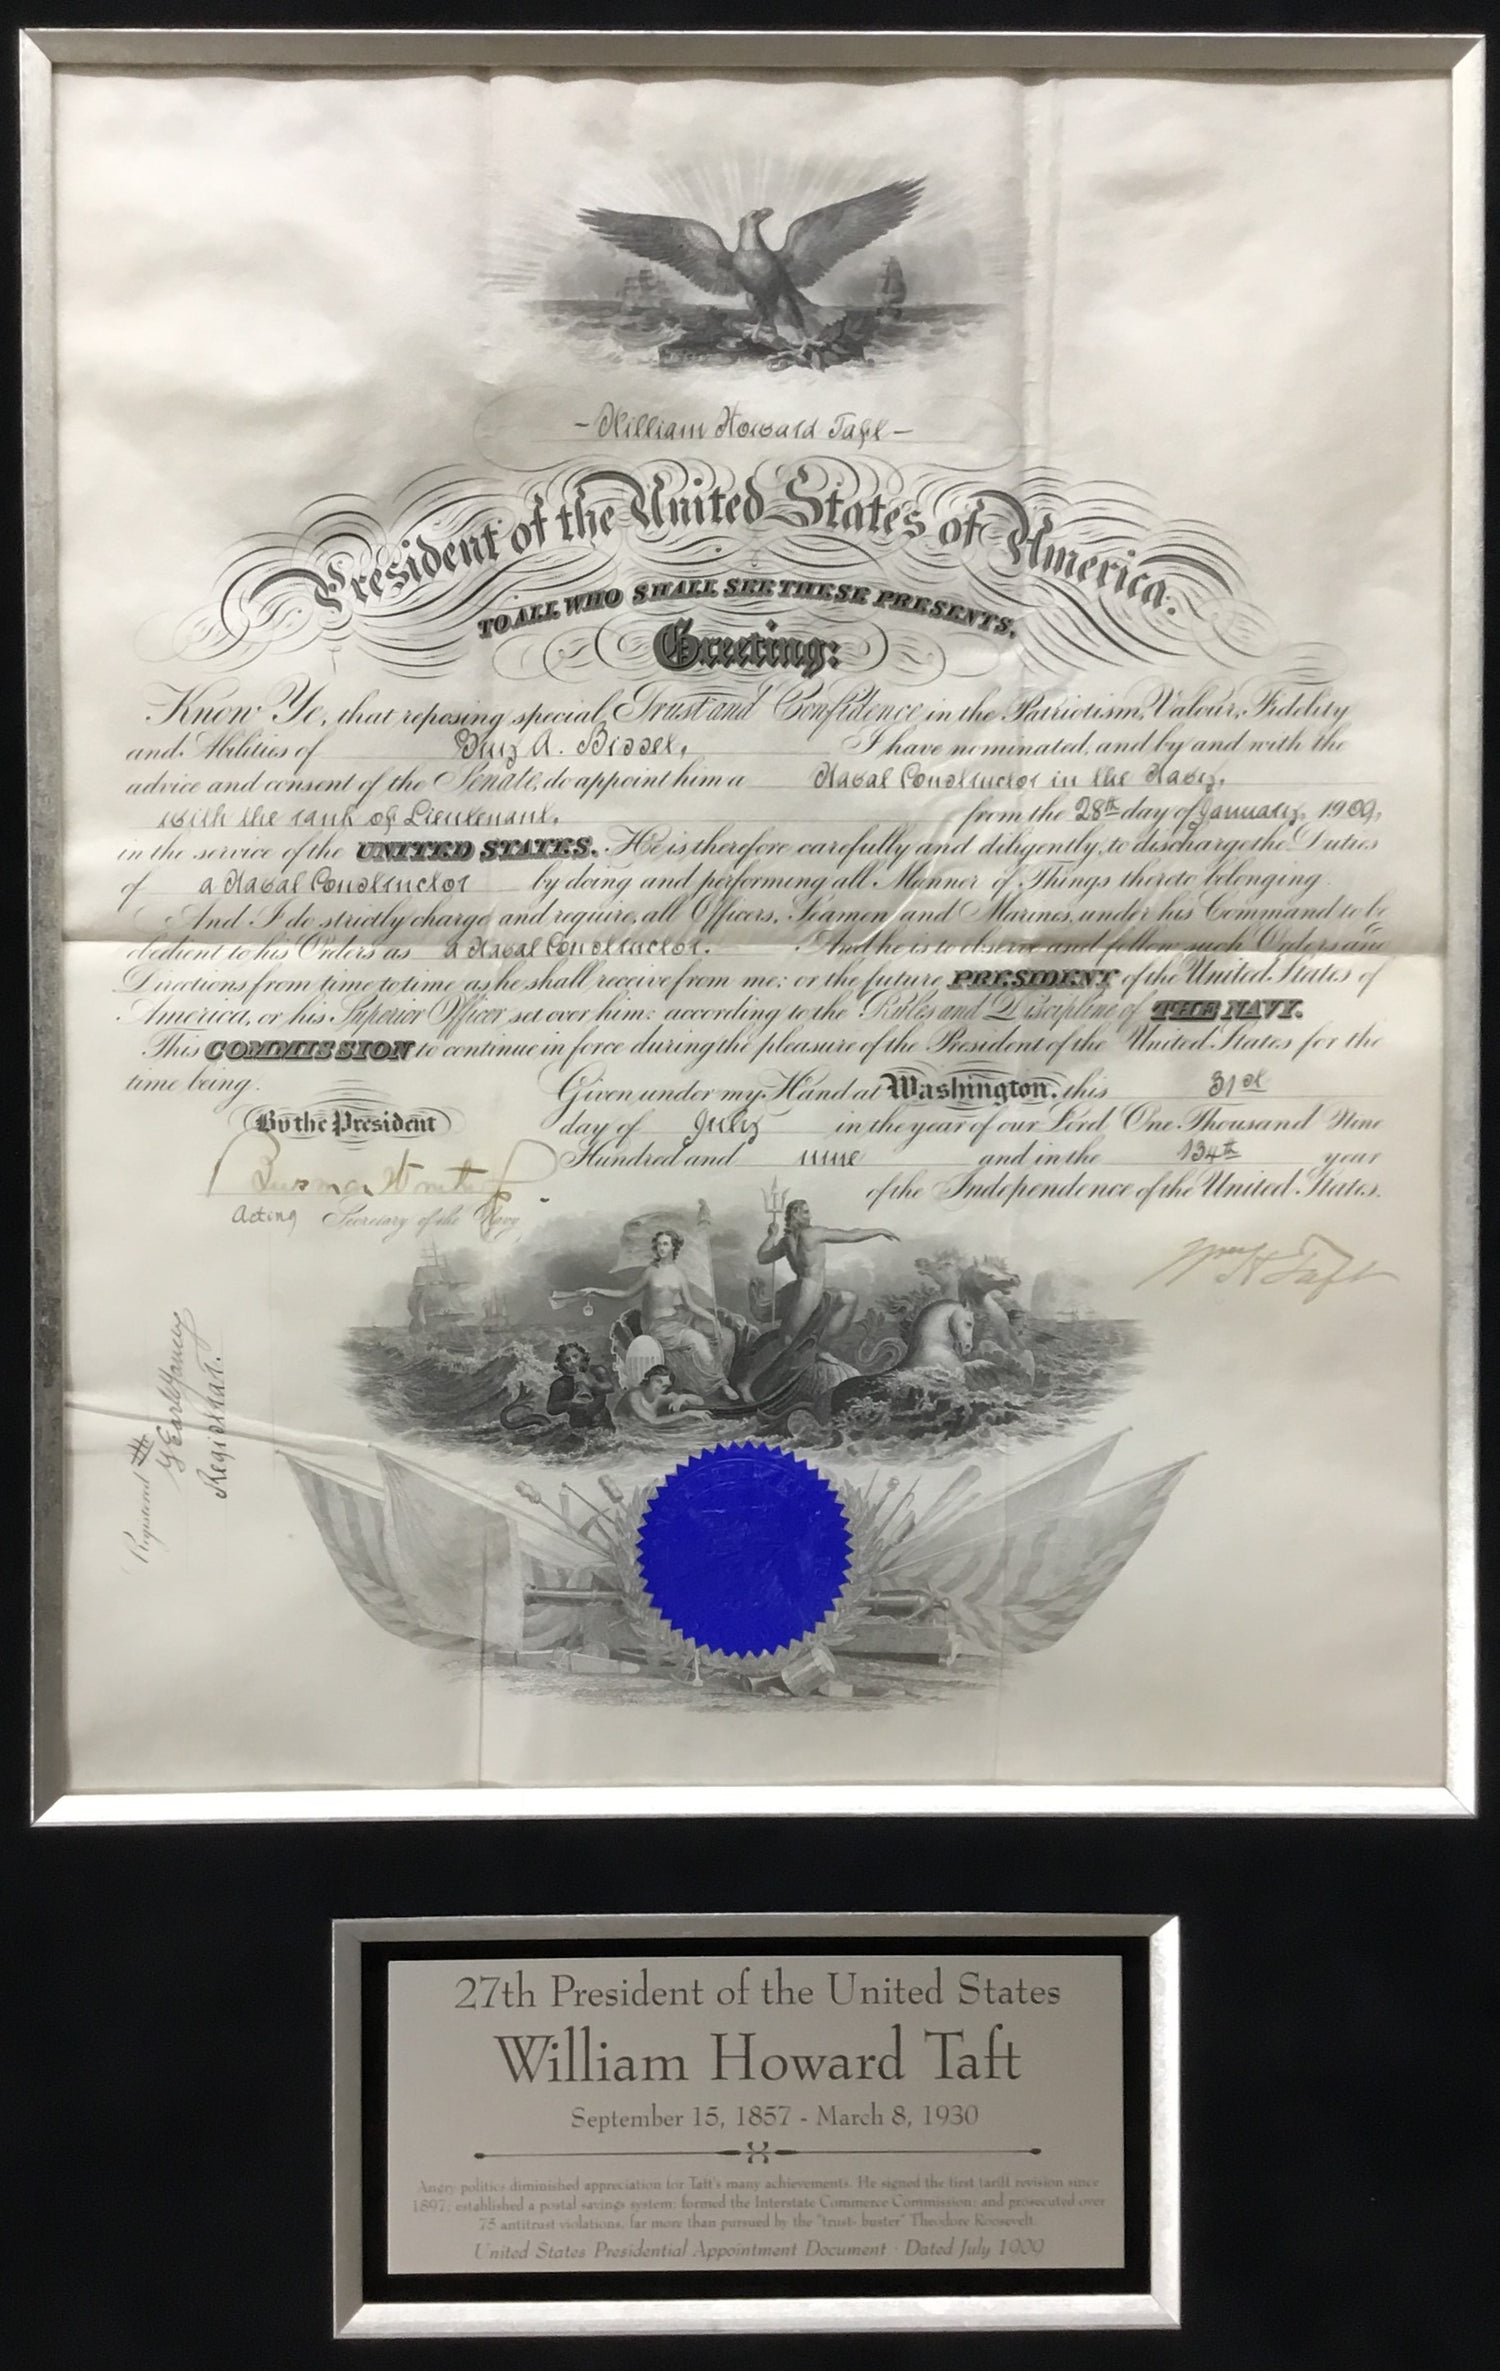 - William Howard Taft -
President of the United States of America.
TO ALL WHO SHALL SEE THESE PRESENTS,
Greeting:
Know Ye, that reposing special Trust and Confidence in the Patriotism, Valour, Fidelity
and Abilities of Guy A. Bissel, I have nominated, and by and with the
advice and consent of the Senate, do appoint him a Naval Constructor in the Navy,
with the rank of Lieutenant, from the 28th day of January, 1909,
in the service of the UNITED STATES. He is therefore carefully and diligently to discharge the Duties
of a Naval Constructor by doing and performing all Manner of Things thereto belonging.
And I do strictly charge and require all Officers, Seamen and Marines, under his Command to be
obedient to his Orders as a Naval Constructor. And he is to observe and follow such Orders and
Directions from time to time as he shall receive from me: or the future PRESIDENT of the United States of
America, or his Superior Officer set over him: according to the Rules and Discipline of THE NAVY.
This COMMISSION to continue in force during the pleasure of the President of the United States for the
time being.
Given under my Hand at Washington, this 31st
day of July in the year of our Lord One Thousand Nine
Hundred and nine and in the 134th year
of the Independence of the United States.
By the President
Acting Secretary of the Navy
Wm H Taft
Registered
Registrar.
27th President of the United States
William Howard Taft
September 15, 1857 - March 8, 1930
Angry politics diminished appreciation for Taft's many achievements. He signed the first tariff revision since
1897; established a postal savings system; formed the Interstate Commerce Commission; and prosecuted over
75 antitrust violations, far more than pursued by the "trust- buster" Theodore Roosevelt.
United States Presidential Appointment Document · Dated July 1909